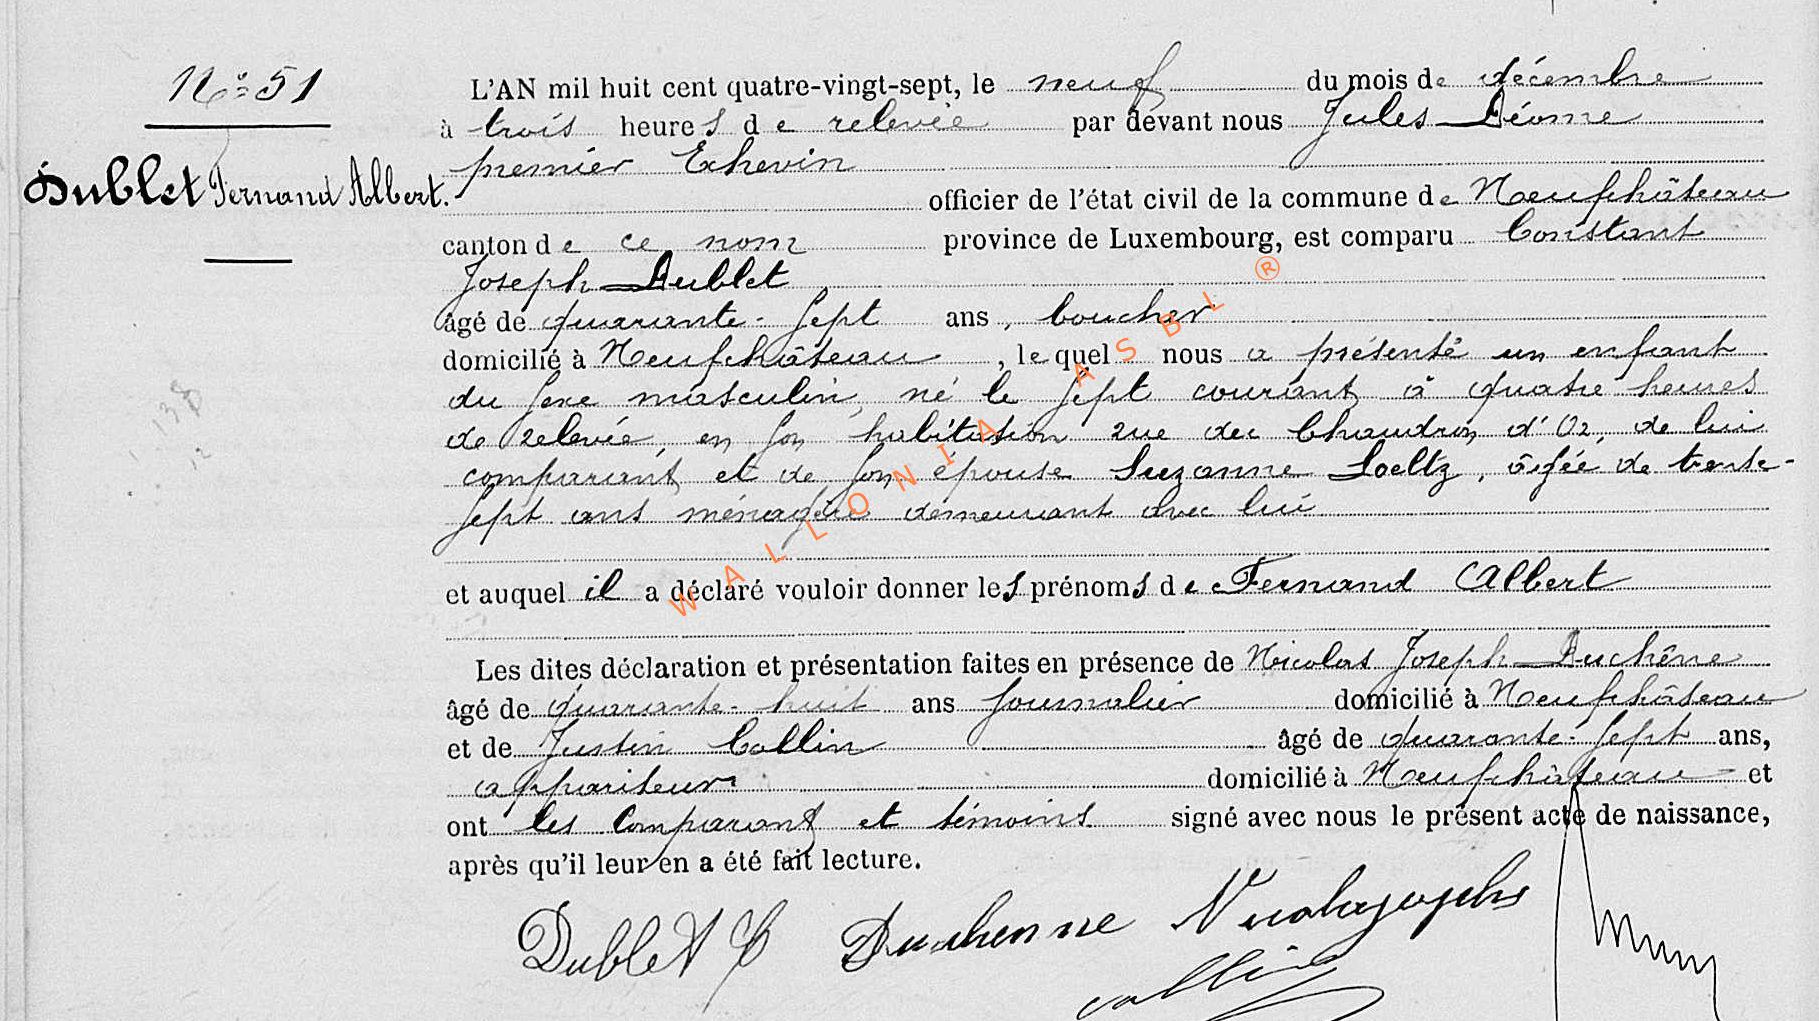 N° 51
Dublet Fernand Albert.
L'AN mil huit cent quatre-vingt-sept, le neuf du mois de décembre
à trois heures de relevée par devant nous Jules Déome
premier Echevin
officier de l'état civil de la commune de Neufchâteau
canton de ce nom province de Luxembourg, est comparu Constant
Joseph Dublet
âgé de quarante-sept ans, boucher
domicilié à Neufchâteau, lequel nous a présenté un enfant
du sexe masculin, né le sept courant à quatre heures
de relevée, en son habitation rue du Chaudron d'Or, de lui
comparant et de son épouse Suzanne Loeltz, âgée de trente-
sept ans ménagère demeurant avec lui
et auquel il a déclaré vouloir donner les prénoms de Fernand Albert
Les dites déclaration et présentation faites en présence de Nicolas Joseph Duchêne
âgé de quarante-huit ans journalier domicilié à Neufchâteau
et de Justin Collin âgé de quarante-sept ans,
appariteur domicilié à Neufchâteau et
ont les comparant et témoins signé avec nous le présent acte de naissance,
après qu'il leur en a été fait lecture.
Dublet C Duchenne Nicolas joseph
collin
WALLONIA ASBL ®